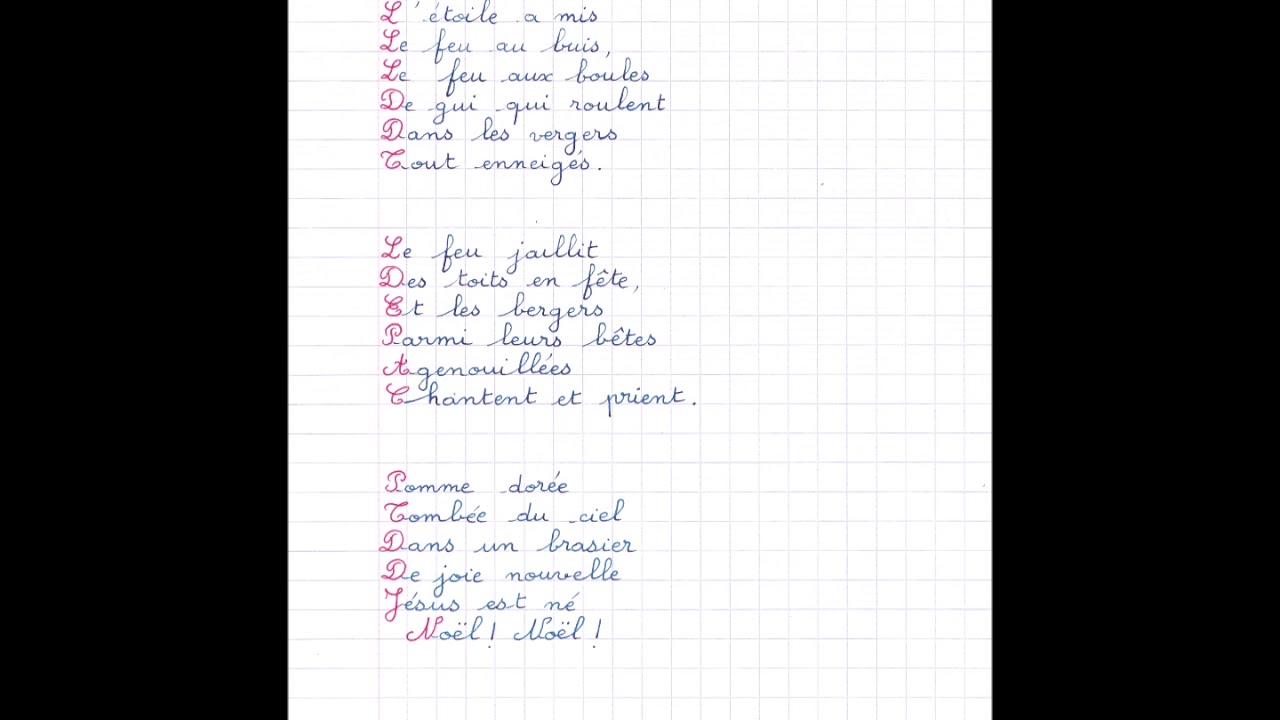 L'étoile a mis
Le feu au buis,
Le feu aux boules
De gui qui roulent
Dans les vergers
Tout enneigés.
Le feu jaillit
Des toits en fête,
Et les bergers
Parmi leurs bêtes
Agenouillées
Chantent et prient.
Pomme dorée
Tombée du ciel
Dans un brasier
De joie nouvelle
Jésus est né
Noël ! Noël !